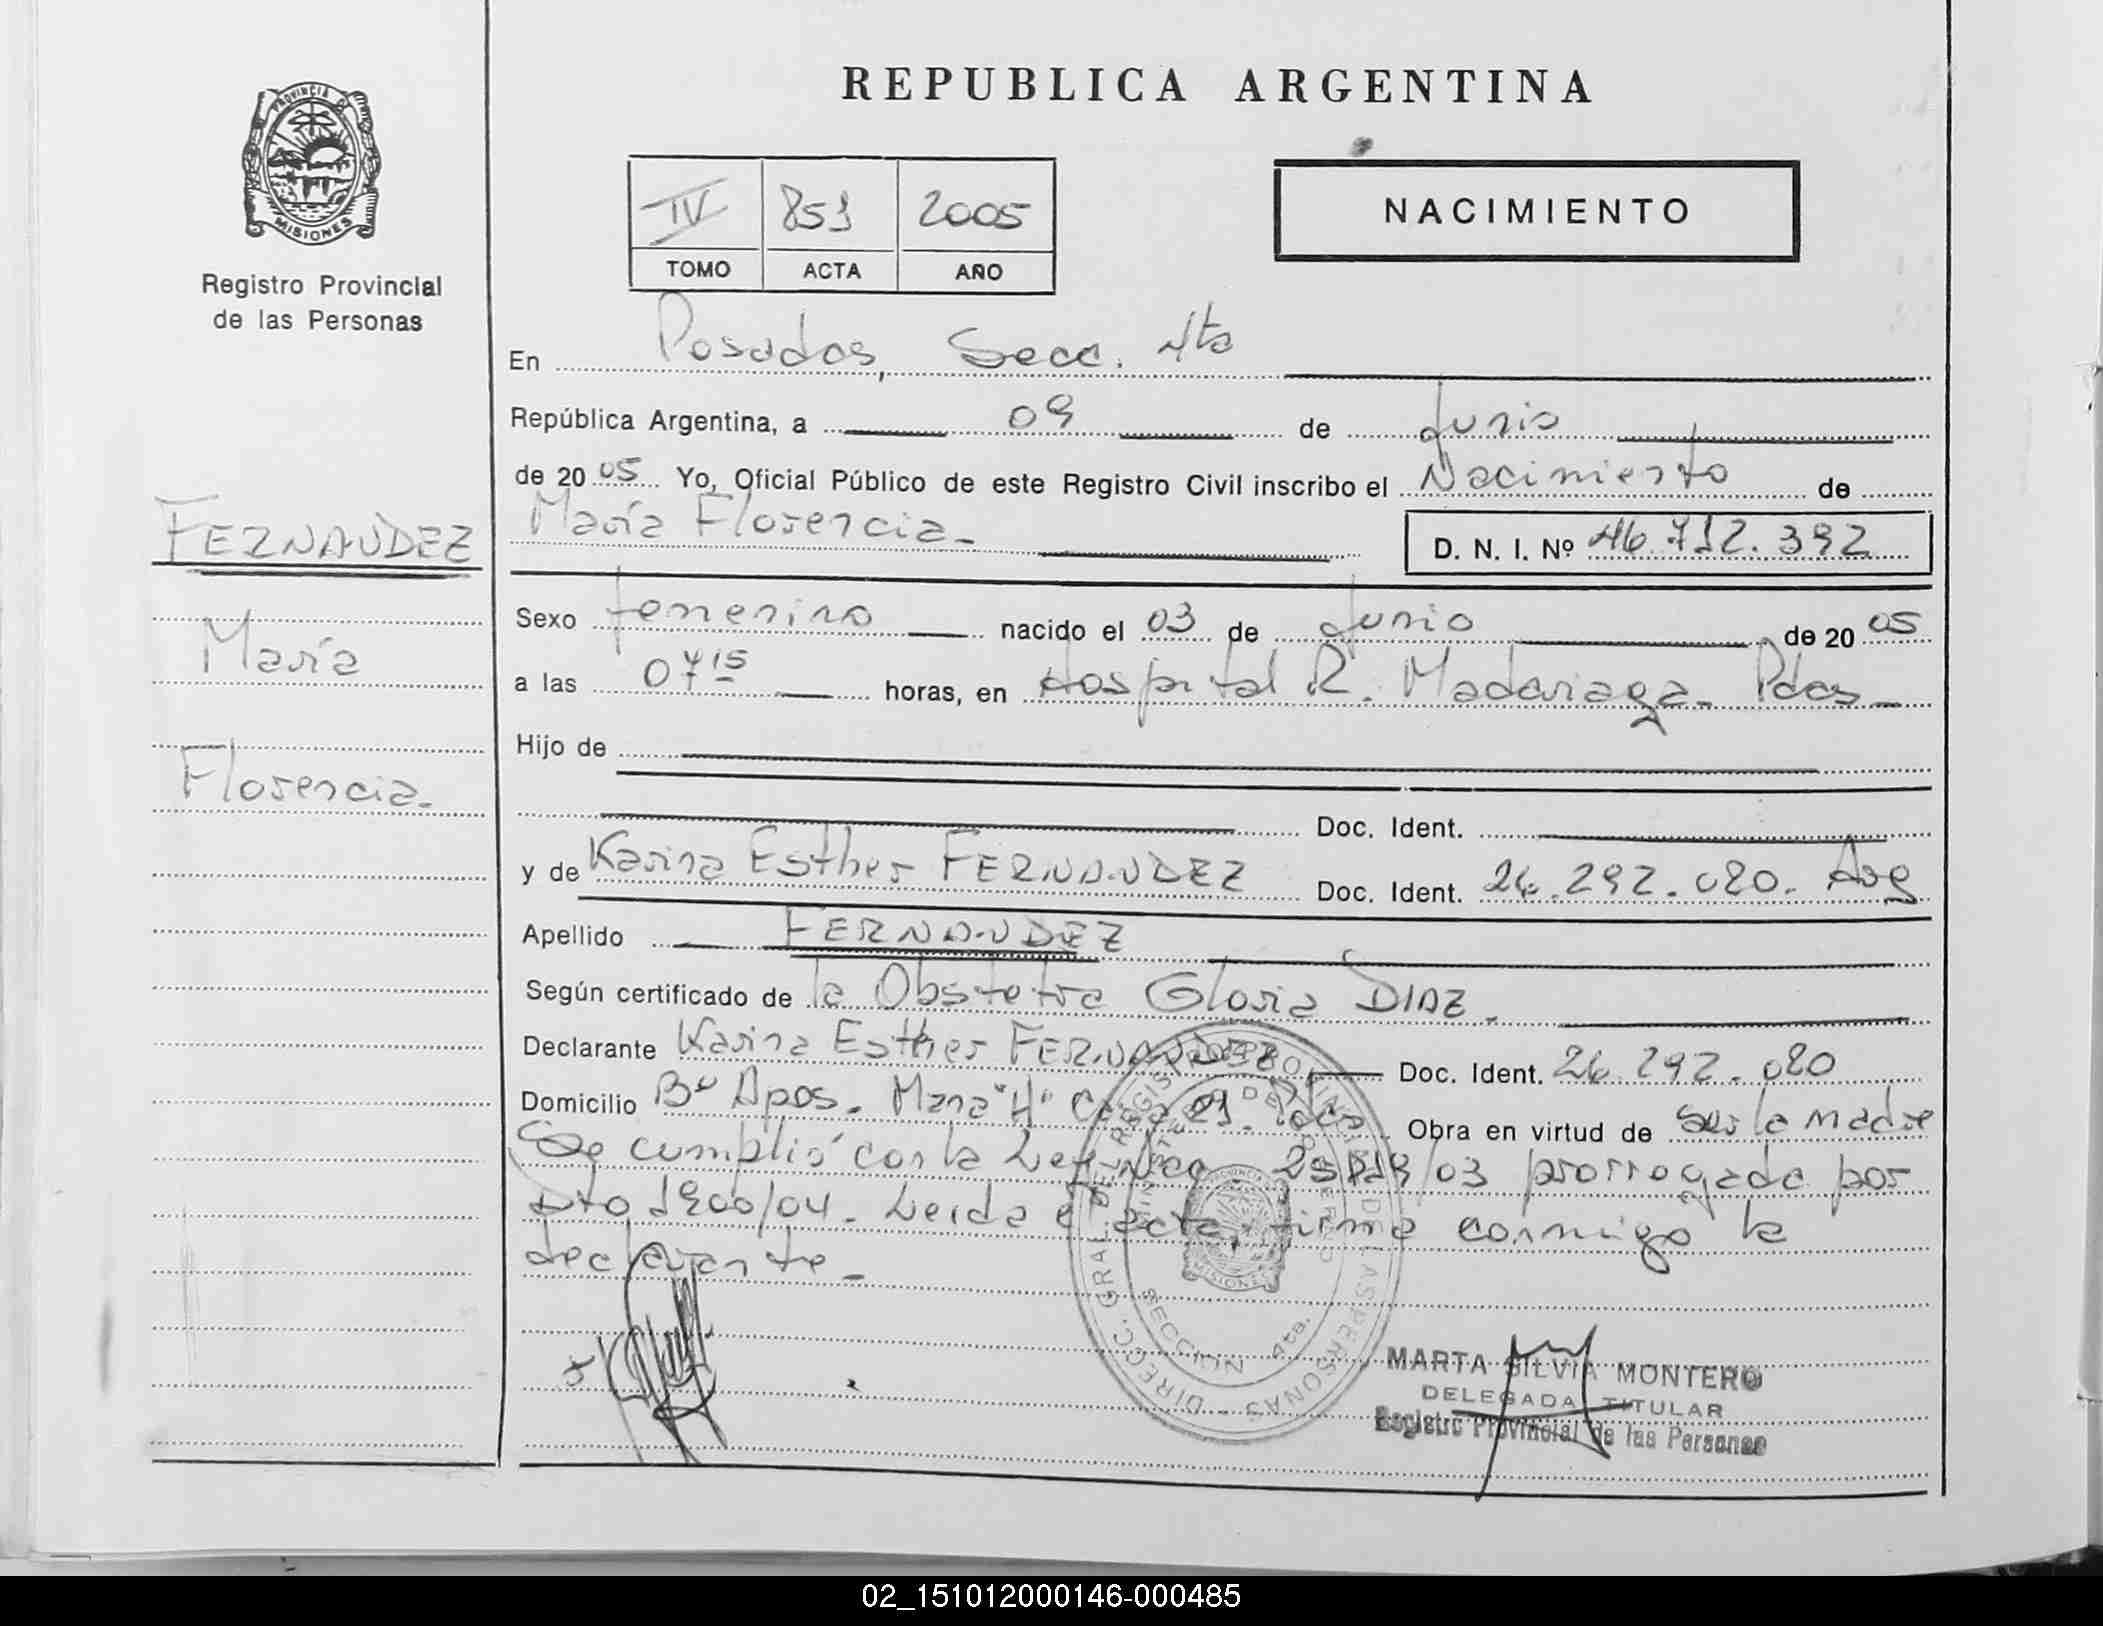 REPUBLICA ARGENTINA
PROVINCIA D
MISIONES
Registro Provincial
de las Personas
IV 851 2005
TOMO ACTA AÑO
NACIMIENTO
En Posadas, Secc. 4ta
República Argentina, a 09 de Junio
de 2005 Yo, Oficial Público de este Registro Civil inscribo el Nacimiento de
María Florencia.- D. N. I. Nº 46.712.392
FERNANDEZ
María
Florencia.-
Sexo femenino nacido el 03 de Junio de 2005
a las 07 15 horas, en Hospital R. Madariaga. Pdas
Hijo de
Doc. Ident.
y de Karina Esther FERNANDEZ Doc. Ident. 26.292.020. Arg
Apellido FERNANDEZ
Según certificado de la Obstetra Gloria DIAZ.
Declarante Karina Esther FERNANDEZ Doc. Ident. 26.292.020
Domicilio Bº Apos. Mana "H" Casa 21. Pdas Obra en virtud de ser la madre
Se cumplió con la Ley Nac. 25819/03 prorrogada por
Dto 1900/04. Leida el acta, firma conmigo la
declarante.-
DIRECC. GRAL. DEL REGISTRO PROVINCIAL DE LAS PERSONAS
MINISTERIO DE GOBIERNO
MISIONES
SECCION 4ta.
MARTA SILVIA MONTERO
DELEGADA TITULAR
Registro Provincial de las Personas
02_151012000146-000485